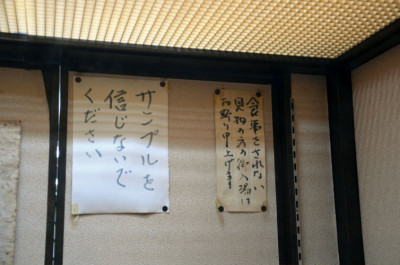 サンプルを
信じないで
ください
食事をされない
見物の方の御入場は
お断り申上げます